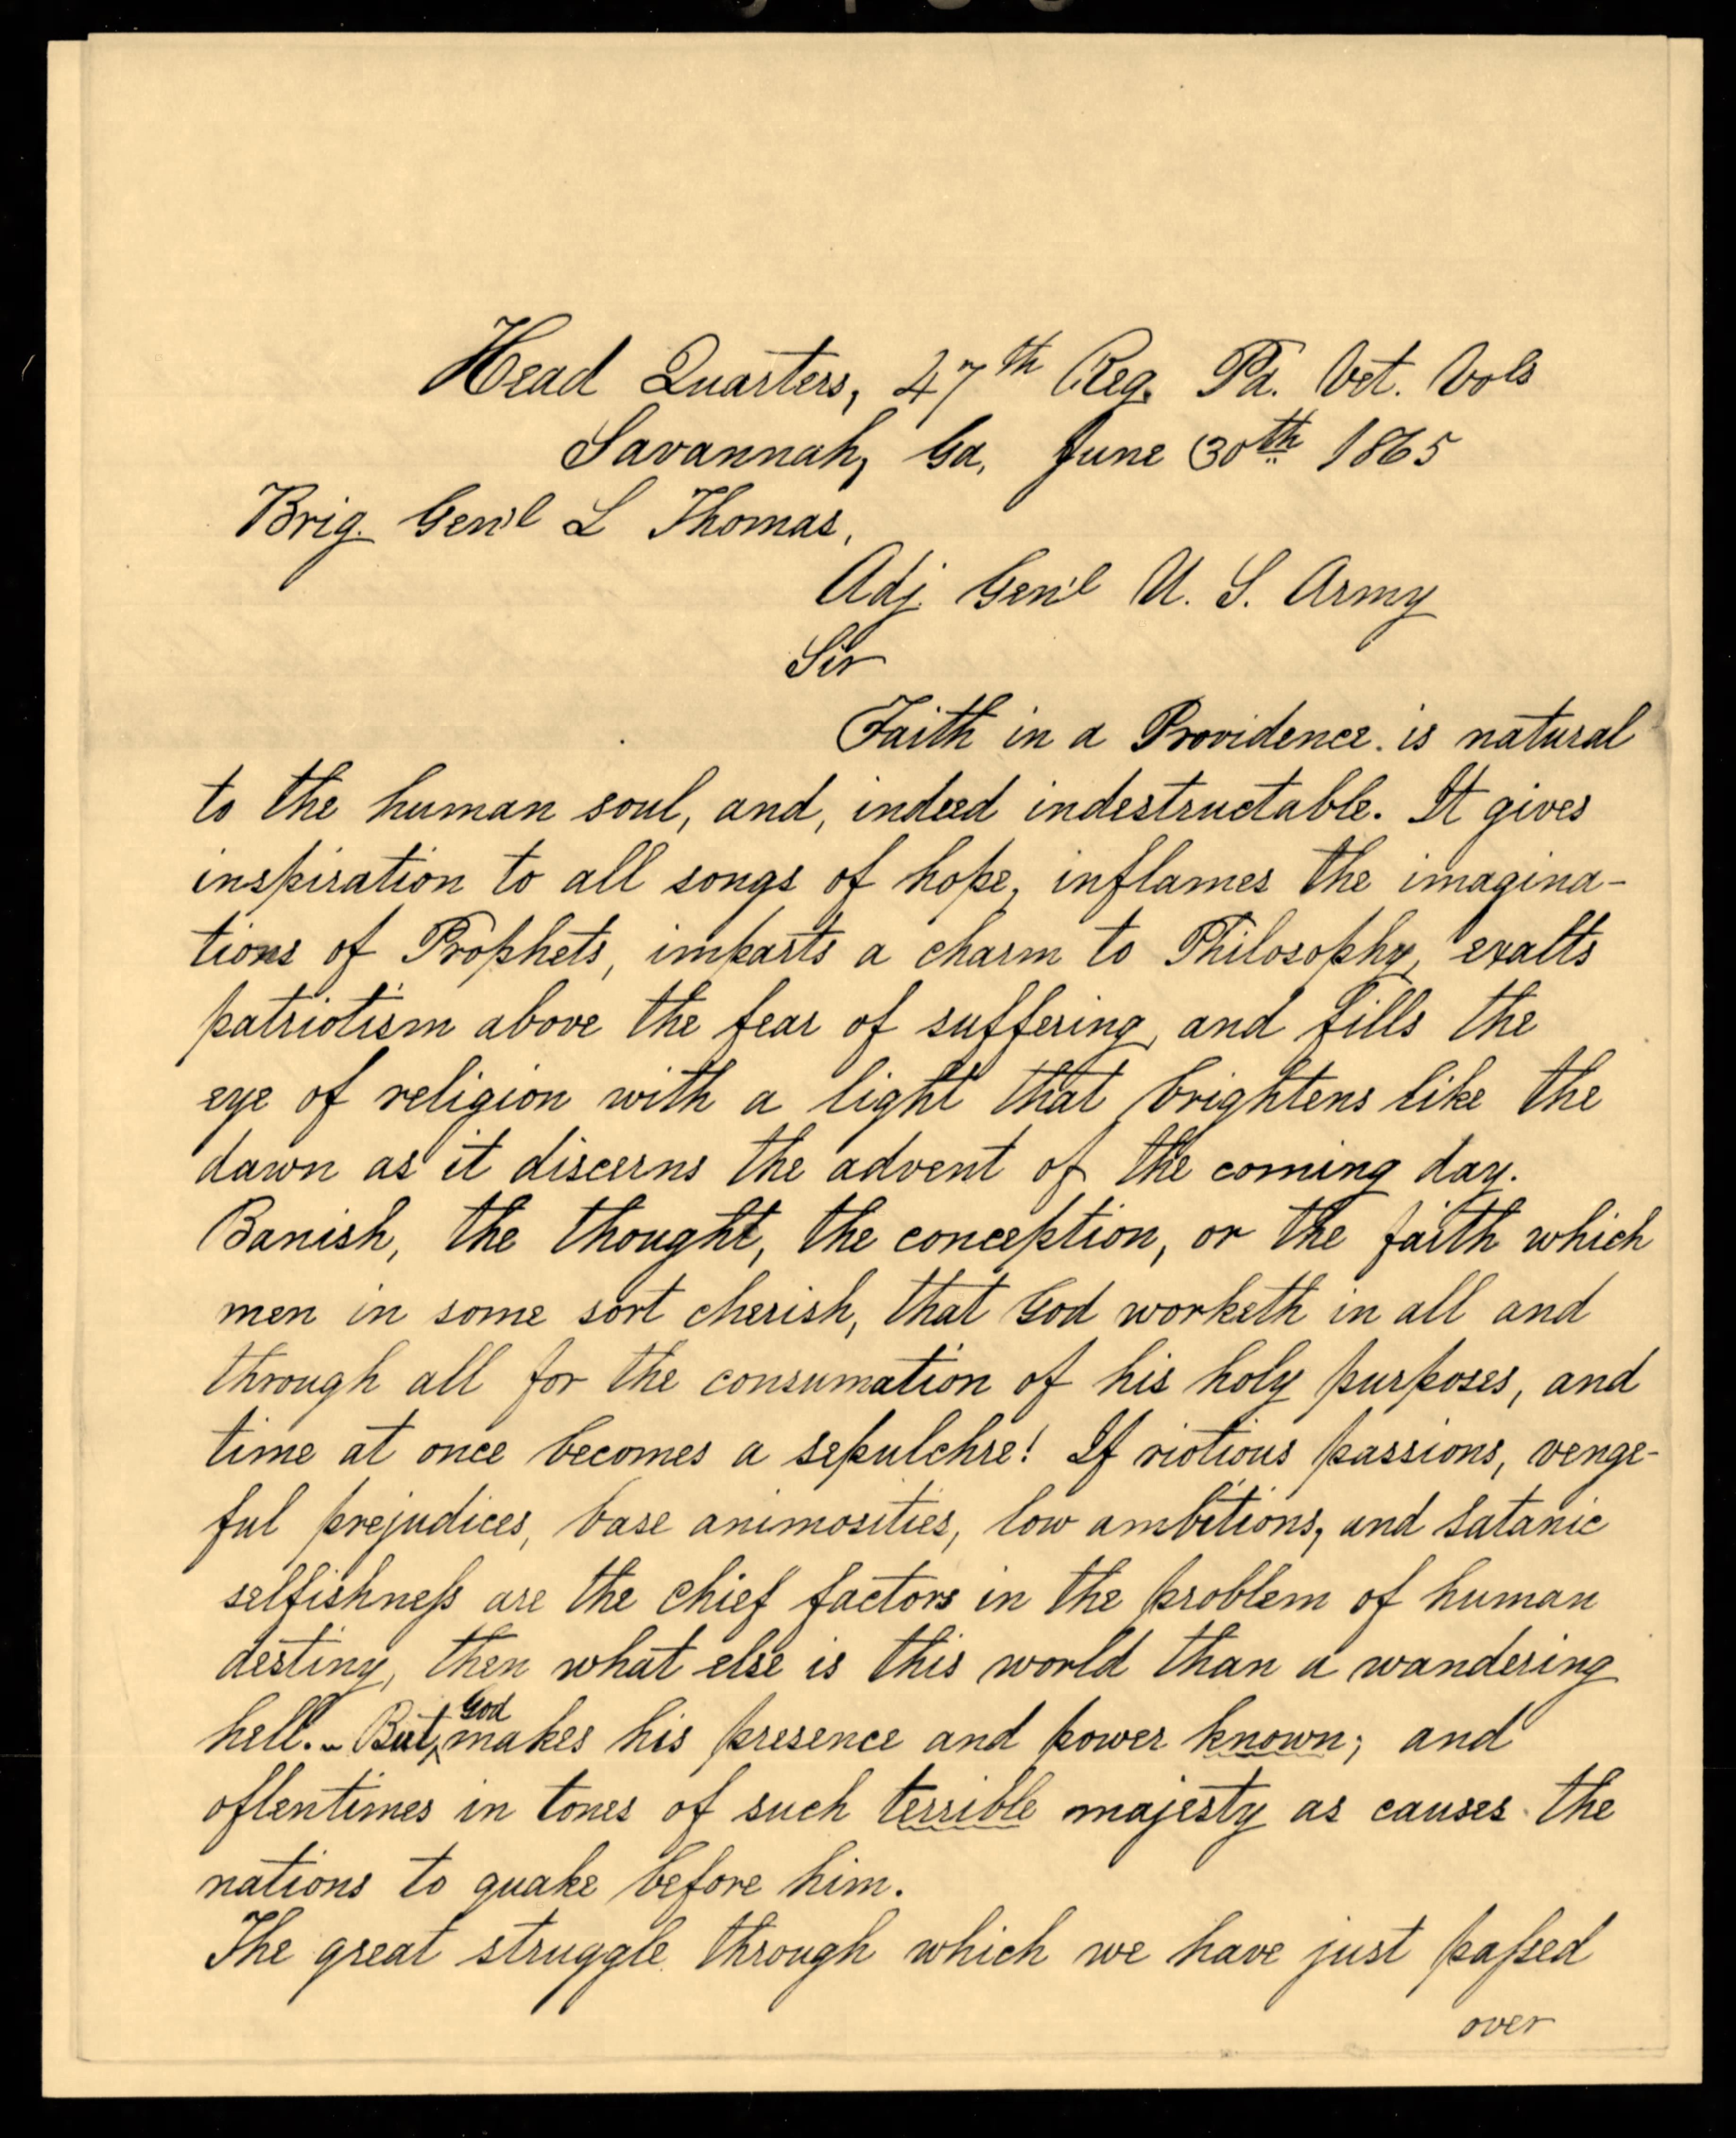 Head Quarters, 47th Reg. Pa. Vet. Vols
Savannah, Ga. June 30th 1865
Brig. Gen'l L Thomas,
Adj. Gen'l U. S. Army
Sir
Faith in a Providence. is natural
to the human soul, and, indeed indestructable. It gives
inspiration to all songs of hope, inflames the imagina-
tions of Prophets, imparts a charm to Philosophy, exalts
patriotism above the fear of suffering, and fills the
eye of religion with a light that brightens like the
dawn as it discerns the advent of the coming day.
Banish, the thought, the conception, or the faith which
men in some sort cherish, that God worketh in all and
through all for the consumation of his holy purposes, and
time at once becomes a sepulchre! If riotious passions, venge-
ful prejudices, base animosities, low ambitions, and satanic
selfishneſs are the chief factors in the problem of human
destiny, then what else is this world than a wandering
hell. – But, God makes his presence and power known; and
oftentimes in tones of such terrible majesty as causes the
nations to quake before him.
The great struggle through which we have just paſsed
over